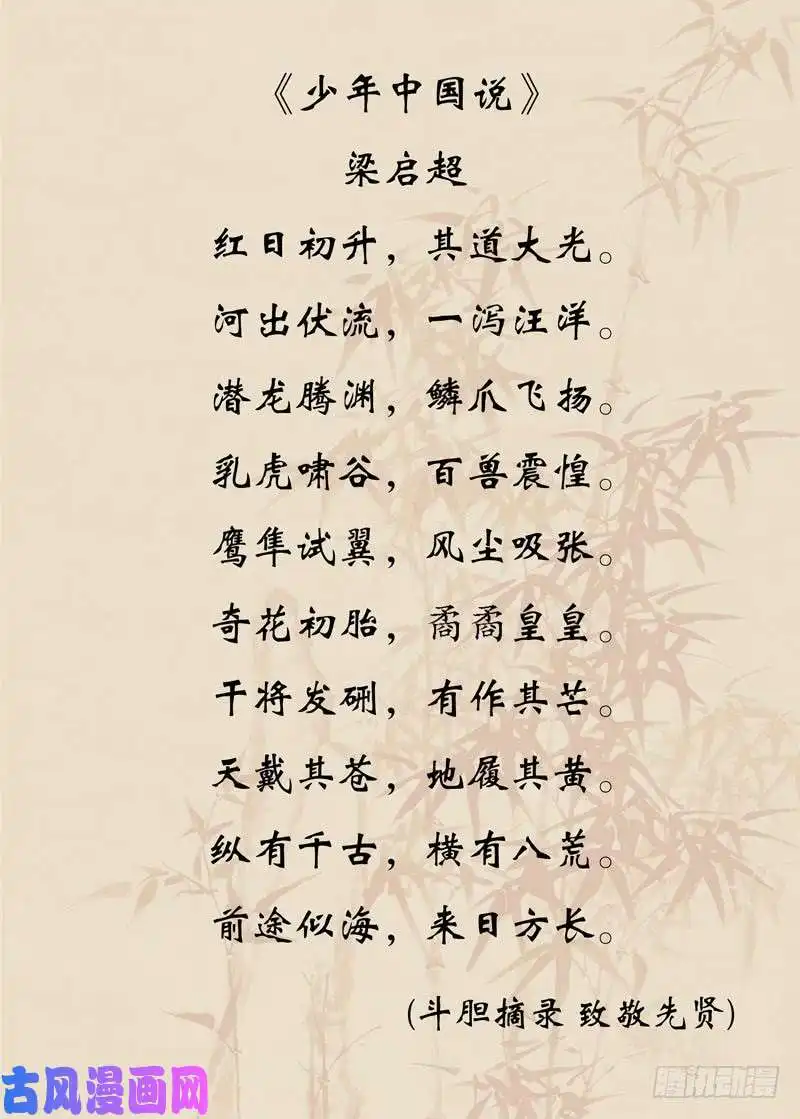 《少年中国说》
梁启超
红日初升，其道大光。
河出伏流，一泻汪洋。
潜龙腾渊，鳞爪飞扬。
乳虎啸谷，百兽震惶。
鹰隼试翼，风尘吸张。
奇花初胎，矞矞皇皇。
干将发硎，有作其芒。
天戴其苍，地履其黄。
纵有千古，横有八荒。
前途似海，来日方长。
(斗胆摘录 致敬先贤)
古风漫画网
腾讯动漫